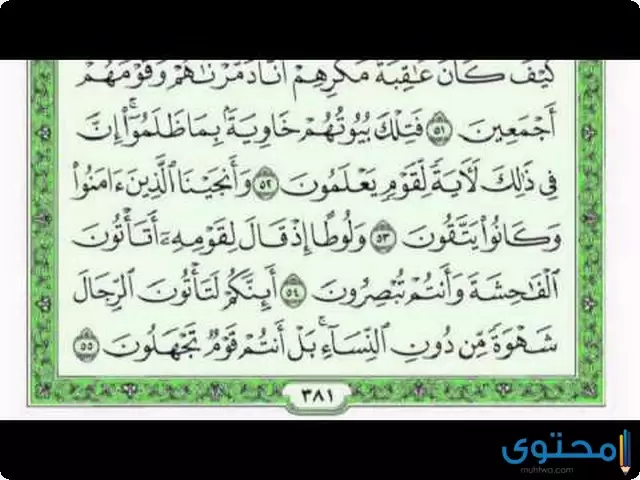 كَيْفَ كَانَ عَٰقِبَةُ مَكْرِهِمْ أَنَّا دَمَّرْنَٰهُمْ وَقَوْمَهُمْ
أَجْمَعِينَ ٥١ فَتِلْكَ بُيُوتُهُمْ خَاوِيَةًۢ بِمَا ظَلَمُوٓا۟ۚ إِنَّ
فِى ذَٰلِكَ لَءَايَةً لِّقَوْمٍ يَعْلَمُونَ ٥٢ وَأَنجَيْنَا ٱلَّذِينَ ءَامَنُوا۟
وَكَانُوا۟ يَتَّقُونَ ٥٣ وَلُوطًا إِذْ قَالَ لِقَوْمِهِۦٓ أَتَأْتُونَ
ٱلْفَٰحِشَةَ وَأَنتُمْ تُبْصِرُونَ ٥٤ أَئِنَّكُمْ لَتَأْتُونَ ٱلرِّجَالَ
شَهْوَةً مِّن دُونِ ٱلنِّسَآءِۚ بَلْ أَنتُمْ قَوْمٌ تَجْهَلُونَ ٥٥
٣٨١
محتوى
muhtwa.com